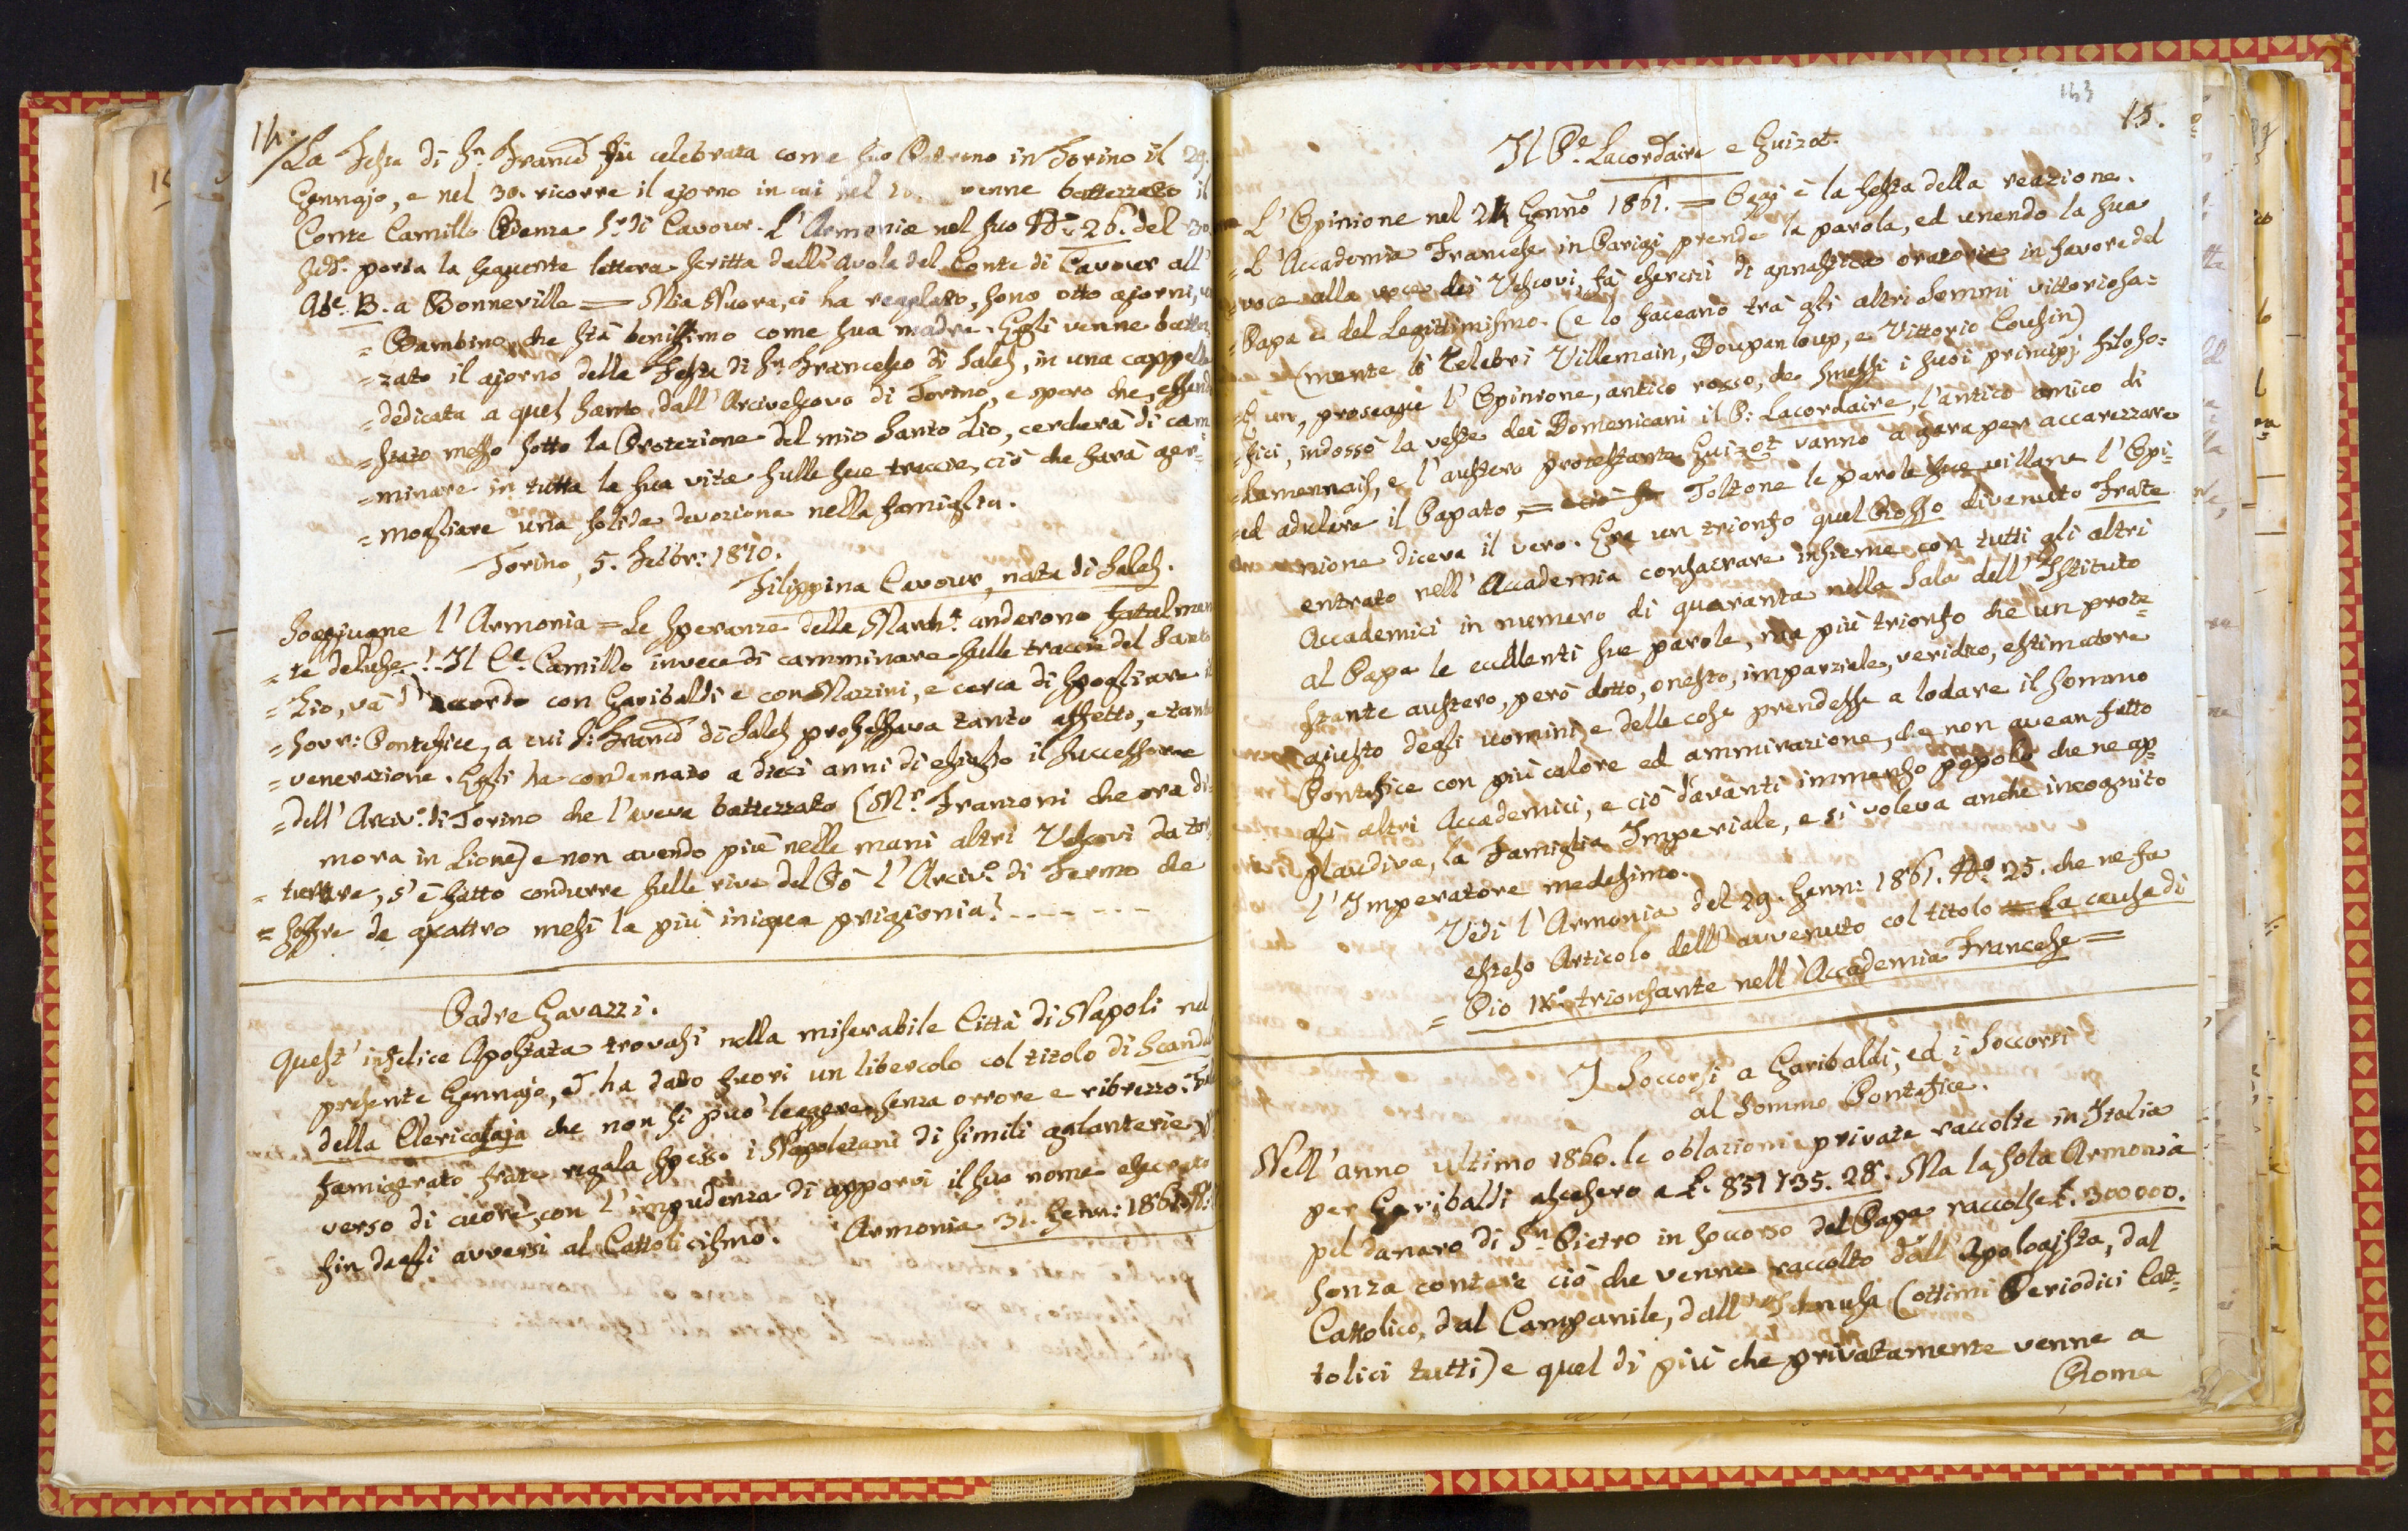 14.
La Festa di Sn. Franco fu celebrata come suo Patrono in Torino il 29.
Gennajo, e nel 30. ricorre il giorno in cui nel venne battezzato il
Conte Camillo Benza Sr. di Cavour. L'Armonia nel suo No. 26. del 30.
porta la seguente lettera scritta dall'Avola del Conte di Cavour all'
Abe. B. a Bonneville = Mia Nuora, ci ha regalato, sono otto giorni, un
= Bambino, che stà benissimo come sua madre. Egli venne battez
= zato il giorno della Festa di Sn. Francesco di Sales, in una cappella
= dedicata a quel Santo, dall'Arcivescovo di Torino, e spero che, essendo
= stato messo sotto la Protezione del mio Santo Zio, cercherà di cam=
= minare in tutta la sua vita sulle sue traccie, ciò che farà ger=
= mogliare una solida devozione nella famiglia.
Torino, 5. Febbr: 1810.
Filippina Cavour, nata di Sales.
Soggiugne l'Armonia = Le speranze della March.a anderono fatalmen
= te deluse! Il Ce. Camillo invece di camminare sulle traccie del Santo
= Zio, và d'accordo con Garibaldi e con Mazzini, e cerca di spogliare il
= Sovr: Pontefice, a cui S: Franco di Sales professava tanto affetto, e tanta
= venerazione. Egli ha condannato a dieci anni di esiglio il successore
= dell'Arciv.o di Torino che l'aveva battezzato (Mr. Franzoni che ora di=
mora in Lione) e non avendo più nelle mani altri Vescovi da tor
= turare, s'è fatto condurre sulle rive del Pò l'Arciv.o di Fermo che
= soffre da quattro mesi la più iniqua prigionia! - - - - - -
Padre Gavazzi.
Quest'infelice Apostata trovasi nella miserabile Città di Napoli nel
presente Gennajo, ed ha dato fuori un libercolo col titolo di Scandali
della Clericalaja che non si può leggere senza orrore e ribrezzo.
famigrato frate regala spesso i Napoletani di simili galanterie,
verso di cuore, con l'impudenza di apporvi il suo nome esecrato
fin dagli avversi al Cattolicismo. Armonia 31. Genn: 1861.
143
15.
Il Pe. Lacordaire e Guizot.
L'Opinione nel 24 Genno 1861. = Oggi è la festa della reazione.
= L'Accademia Francese in Parigi prende la parola, ed unendo la sua
= voce alla voce dei Vescovi, fà esercizi di ginnastica oratoria in favore del
= Papa e del Legittimismo. (e lo faceano trà gli altri sommi vittoriosa=
(mente li celebri Villemain, Doupanloup, e Vittorio Cousin)
= È un, prosegue l'Opinione, antico rosso, che smessi i suoi principj filoso=
= fici, indossò la veste dei Domenicani il P: Lacordaire, l'antico amico di
= Lamennais, e l'austero protestante Guizot vanno a gara per accarezzare
= ed adulare il Papato, = Toltone le parole sue villane l'Opi=
nione diceva il vero. Era un trionfo quel Rosso divenuto Frate
entrato nell'Accademia consacrare insieme con tutti gli altri
Accademici in numero di quaranta nella Sala dell'Istituto
al Papa le eccellenti sue parole, ma più trionfo che un prote=
stante austero, però dotto, onesto, imparziale, veridico, estimatore
giusto degli uomini e delle cose prendesse a lodare il Sommo
Pontefice con più calore ed ammirazione, che non avean fatto
gli altri Accademici, e ciò davanti immenso popolo che ne ap=
plaudiva, la Famiglia Imperiale, e si voleva anche incognito
l'Imperatore medesimo.
Vedi l'Armonia del 29. Genn: 1861. No. 25. che ne fa
esteso Articolo dell'avvenuto col titolo = La causa di
= Pio IX.o trionfante nell'Accademia Francese =
I Soccorsi a Garibaldi, ed i Soccorsi
al Sommo Pontefice.
Nell'anno ultimo 1860. le oblazioni private raccolte in Italia
per Garibaldi ascesero a £. 851735. 28. Ma la sola Armonia
pel danaro di Sn. Pietro in soccorso del Papa raccolse £. 300000.
senza contare ciò che venne raccolto dall'Apologista, dal
Cattolico, dal Campanile, dall' (ottimi Periodici Cat=
tolici tutti) e quel di più che privatamente venne a
Roma